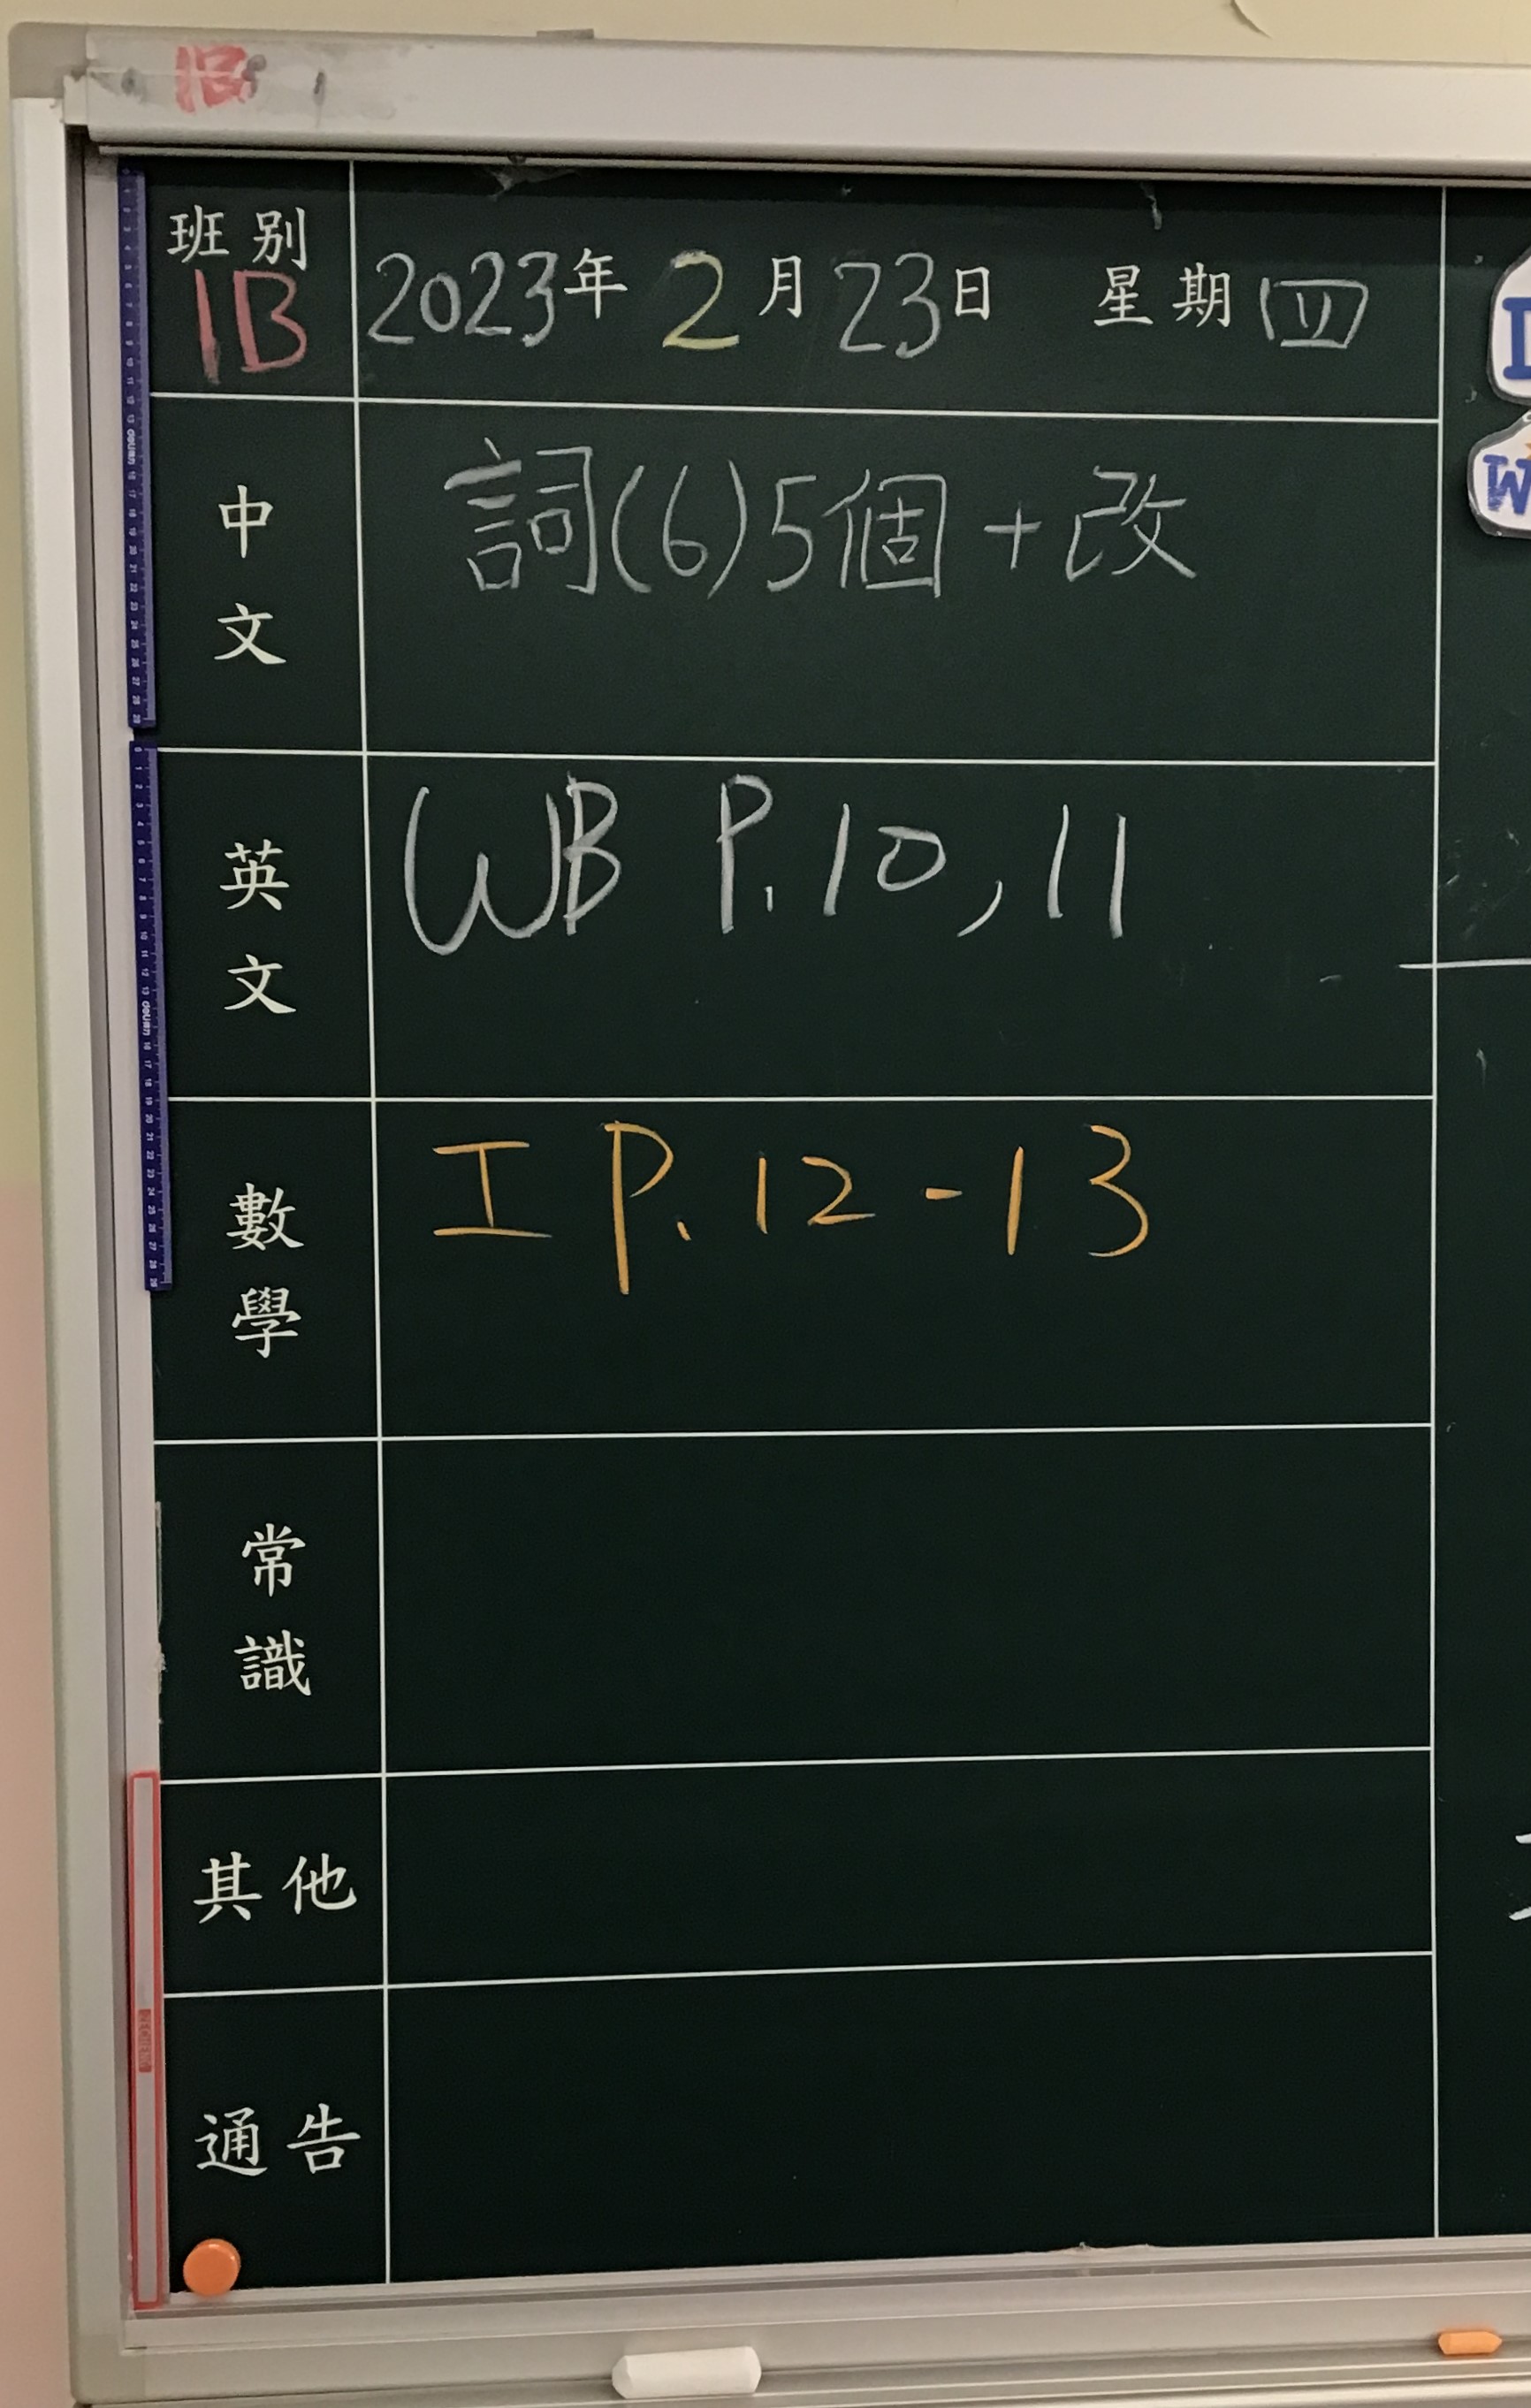 1B
班別 1B
2023年 2月 23日 星期 四
中文 詞(6)5個 + 改
英文 WB P.10, 11
數學 I P.12-13
常識
其他
通告
W